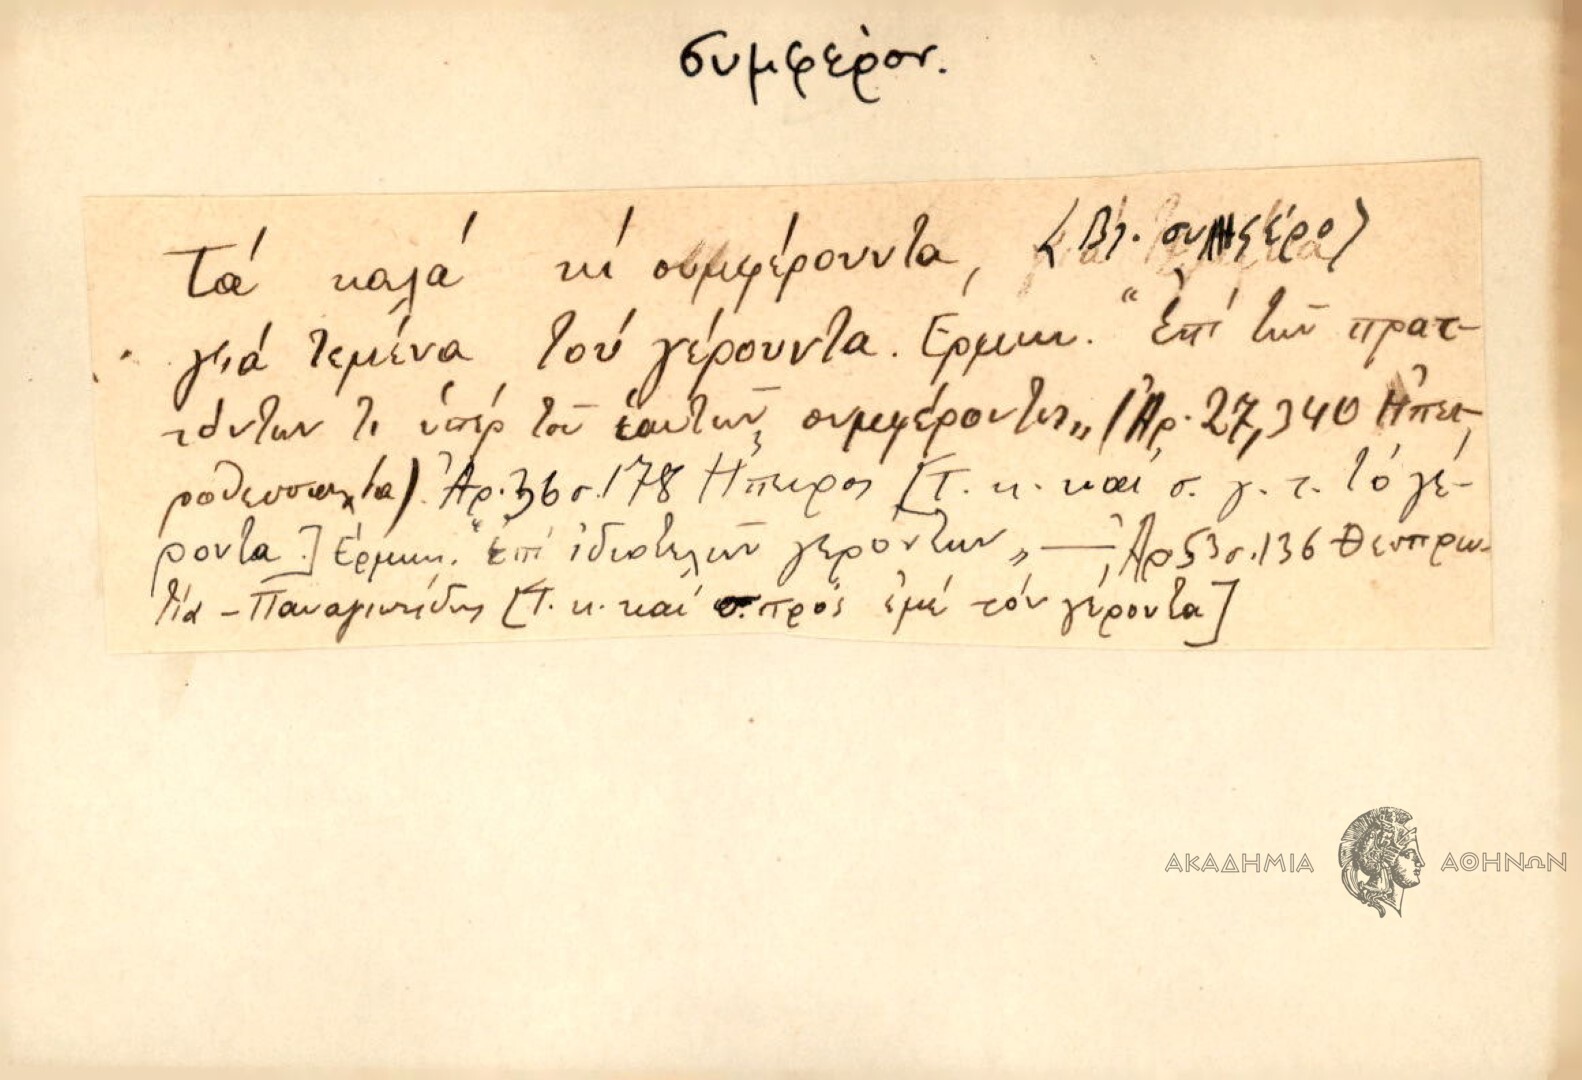 συμφέρον.
Τά καλά κί συμφέρουντα, (Βλ. συμφέρο)
γιά τεμένα τού γέρουντα. Ερμην. "Επί τών πρατ-
τόντων τι υπέρ του εαυτών συμφέροντος„ (Αρ. 27,340 Ηπει-
ροθεσσαλία). Αρ. 36 σ. 178 Ήπειρος [Τ. κ. καί σ. γ. τ. τό γέ-
ροντα.] Ερμην. "Επί ιδιοτελών γερόντων„ — Αρ 53 σ. 136 Θεσπρω-
τία - Παναγιωτίδης [Τ. κ. καί σ. πρός εμέ τόν γέροντα]
ΑΚΑΔΗΜΙΑ ΑΘΗΝΩΝ